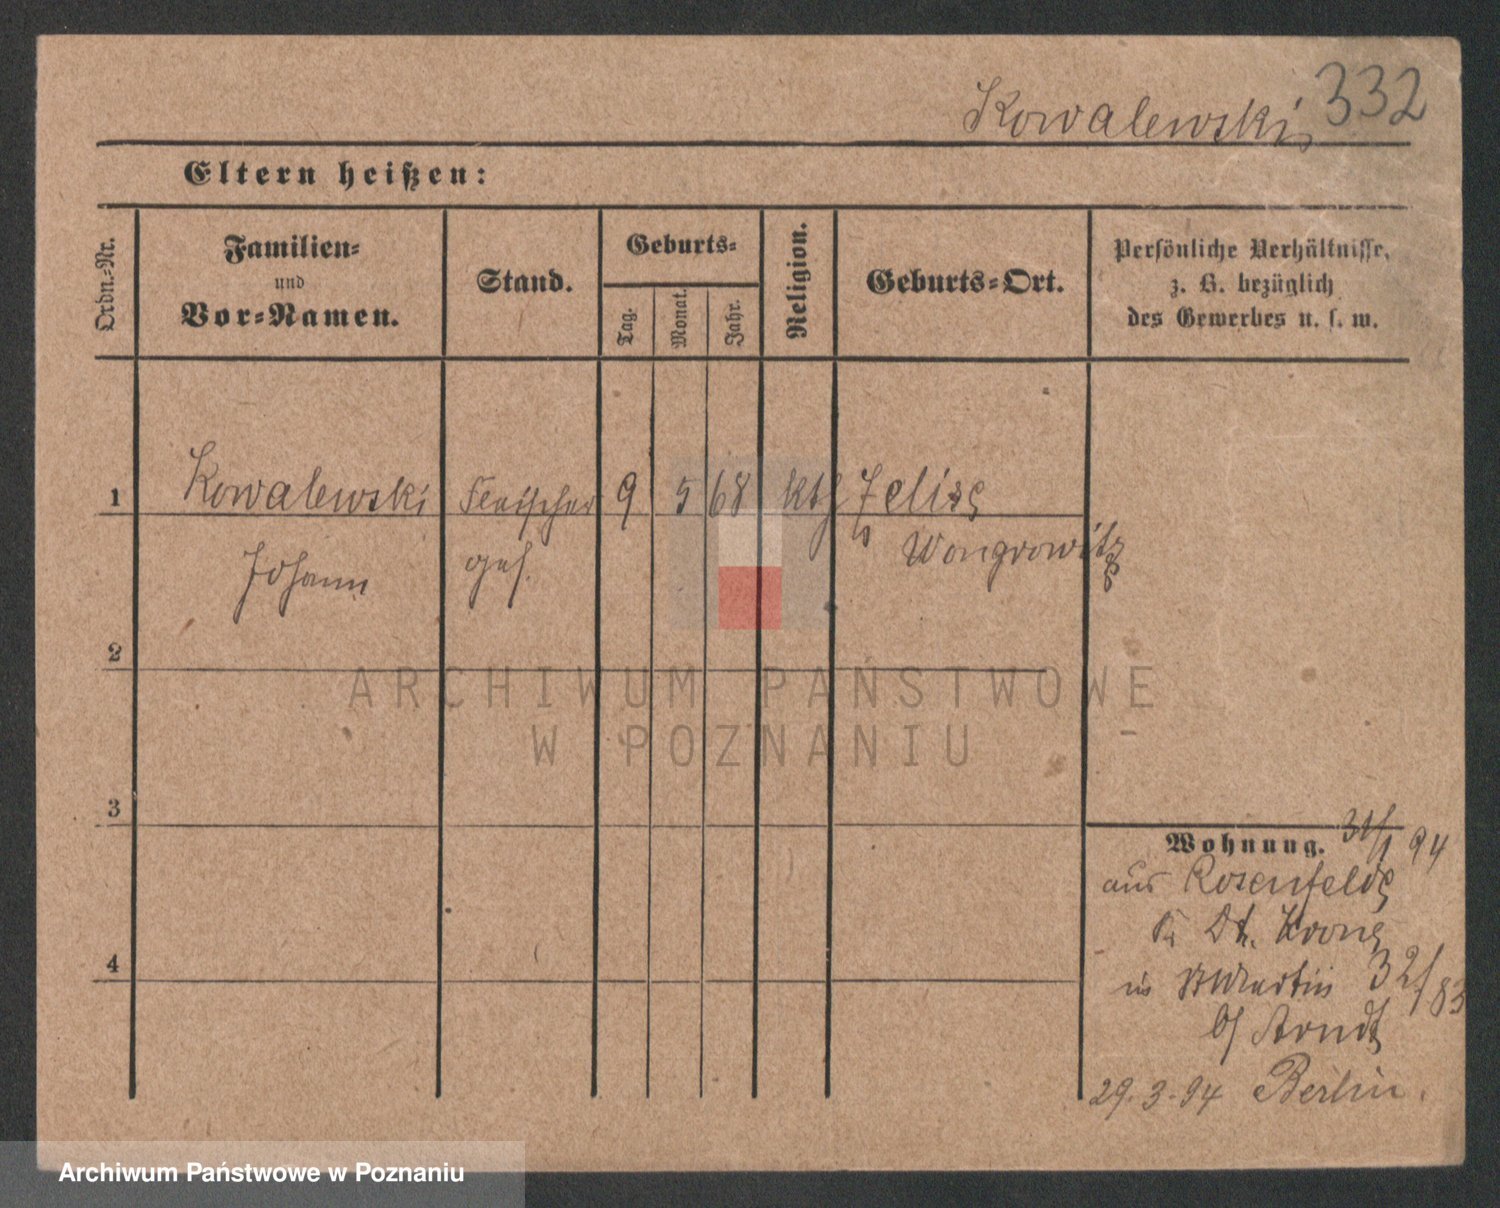 Kowalewski 332
Eltern heißen:
Ordn.-Nr.
Familien-
und
Vor-Namen.
Stand.
Geburts-
Tag.
Monat.
Jahr.
Religion.
Geburts-Ort.
Persönliche Verhältnisse,
z. B. bezüglich
des Gewerbes u. s. w.
1 Kowalewski Fleischer 9 5 68 kth Zelise
Johann ges. Wongrowitz
2
3
4
Wohnung. 31/1 94
aus Rosenfelde
Dt. Krone
in St Martin 32/83
b/ Arndt
29.3.94 Berlin.
ARCHIWUM PAŃSTWOWE
W POZNANIU
Archiwum Państwowe w Poznaniu